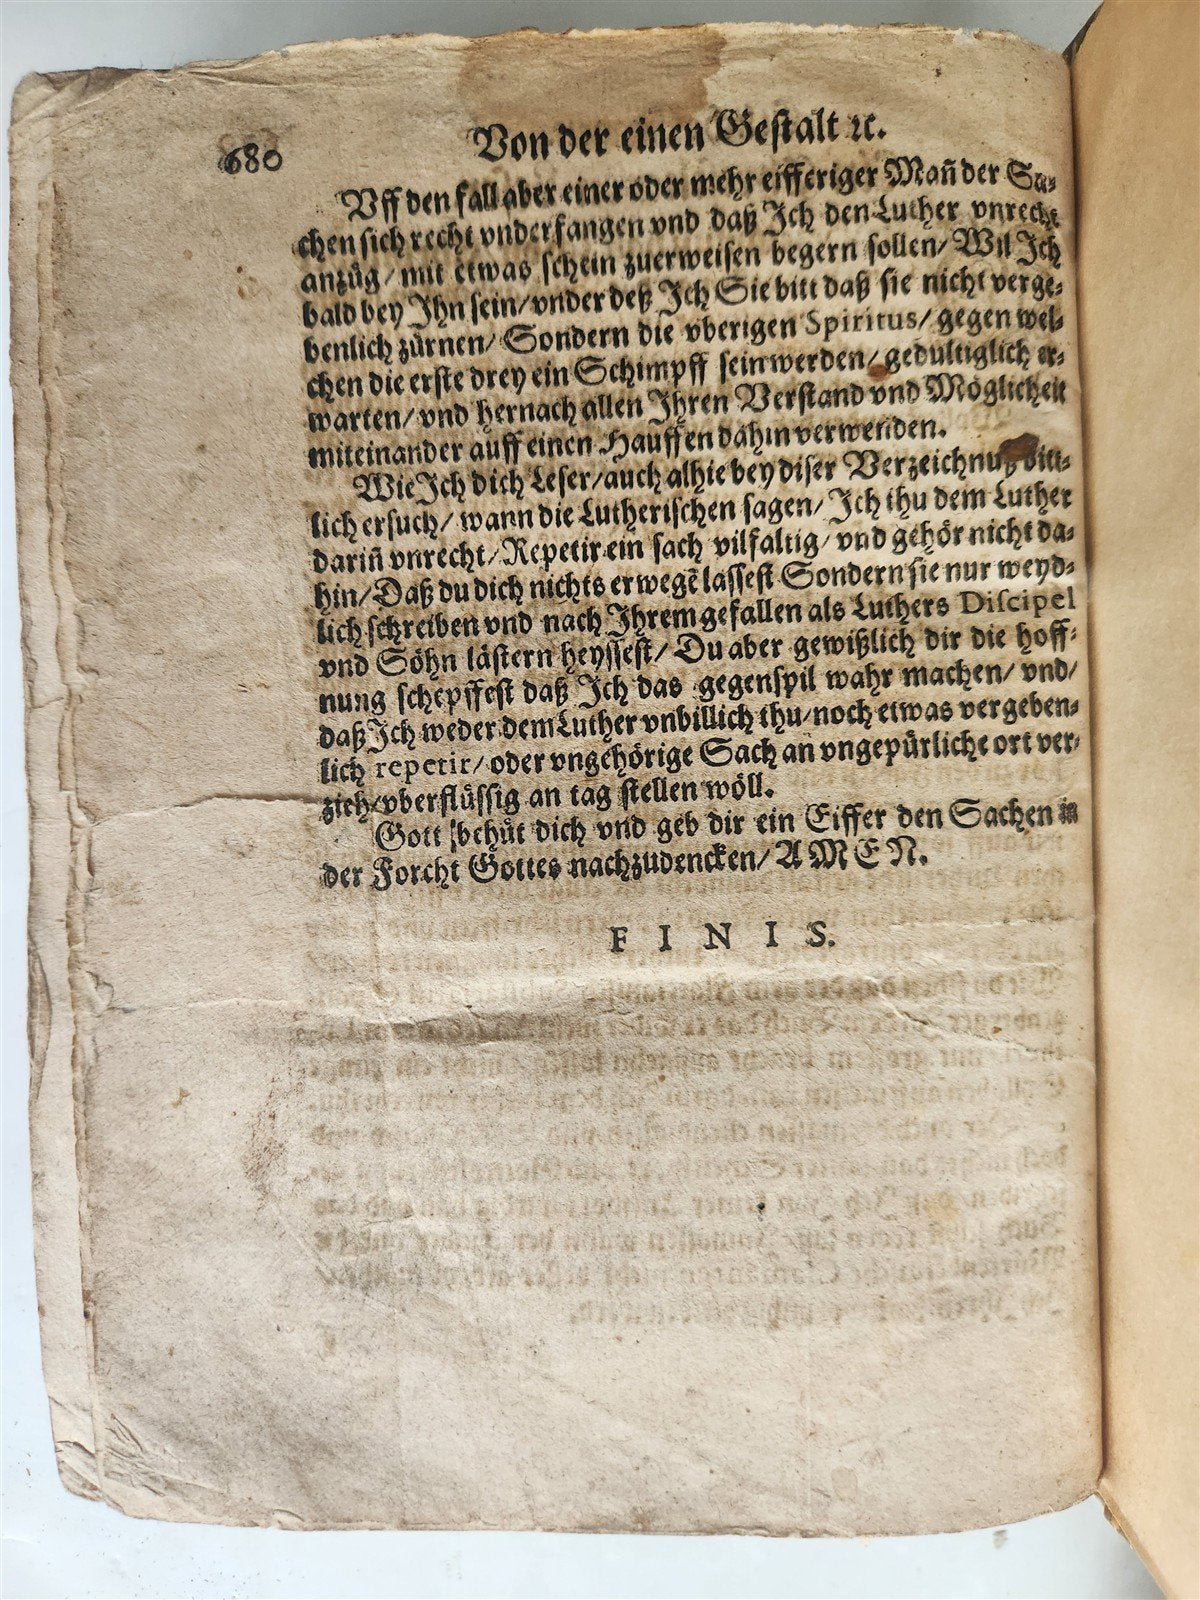 680
Von der einen Gestalt ꝛc.
Vff den fall aber einer oder mehr eifferiger Man̄ der Sa-
chen sich recht vnderfangen vnd daß Ich den Luther vnrecht
anzüg/ mit etwas schein zuerweisen begern sollen/ Wil Ich
bald bey Ihn sein/ vnder deß Ich Sie bitt daß sie nicht verge-
benlich zürnen/ Sondern die vberigen Spiritus/ gegen wel-
chen die erste drey ein Schimpff sein werden/ gedultiglich er-
warten/ vnd hernach allen Ihren Verstand vnd Möglicheit
miteinander auff einen Hauffen dahin verwenden.
Wie Ich dich Leser/ auch alhie bey diser Verzeichnuß bitt-
lich ersuch/ wann die Lutherischen sagen/ Ich thu dem Luther
darin̄ vnrecht/ Repetir ein sach vilfaltig/ vnd gehör nicht da-
hin/ Daß du dich nichts erwegē lassest Sondern sie nur weyd-
lich schreiben vnd nach Ihrem gefallen als Luthers Discipel
vnd Söhn lästern heyssest/ Du aber gewißlich dir die hoff-
nung schepffest daß Ich das gegenspil wahr machen/ vnd/
daß Ich weder dem Luther vnbillich thu/ noch etwas vergeben-
lich repetir/ oder vngehörige Sach an vngepürliche ort ver-
zieh/ vberflüssig an tag stellen wöll.
Gott behüt dich vnd geb dir ein Eiffer den Sachen in
der Forcht Gottes nachzudencken/ AMEN.
FINIS.